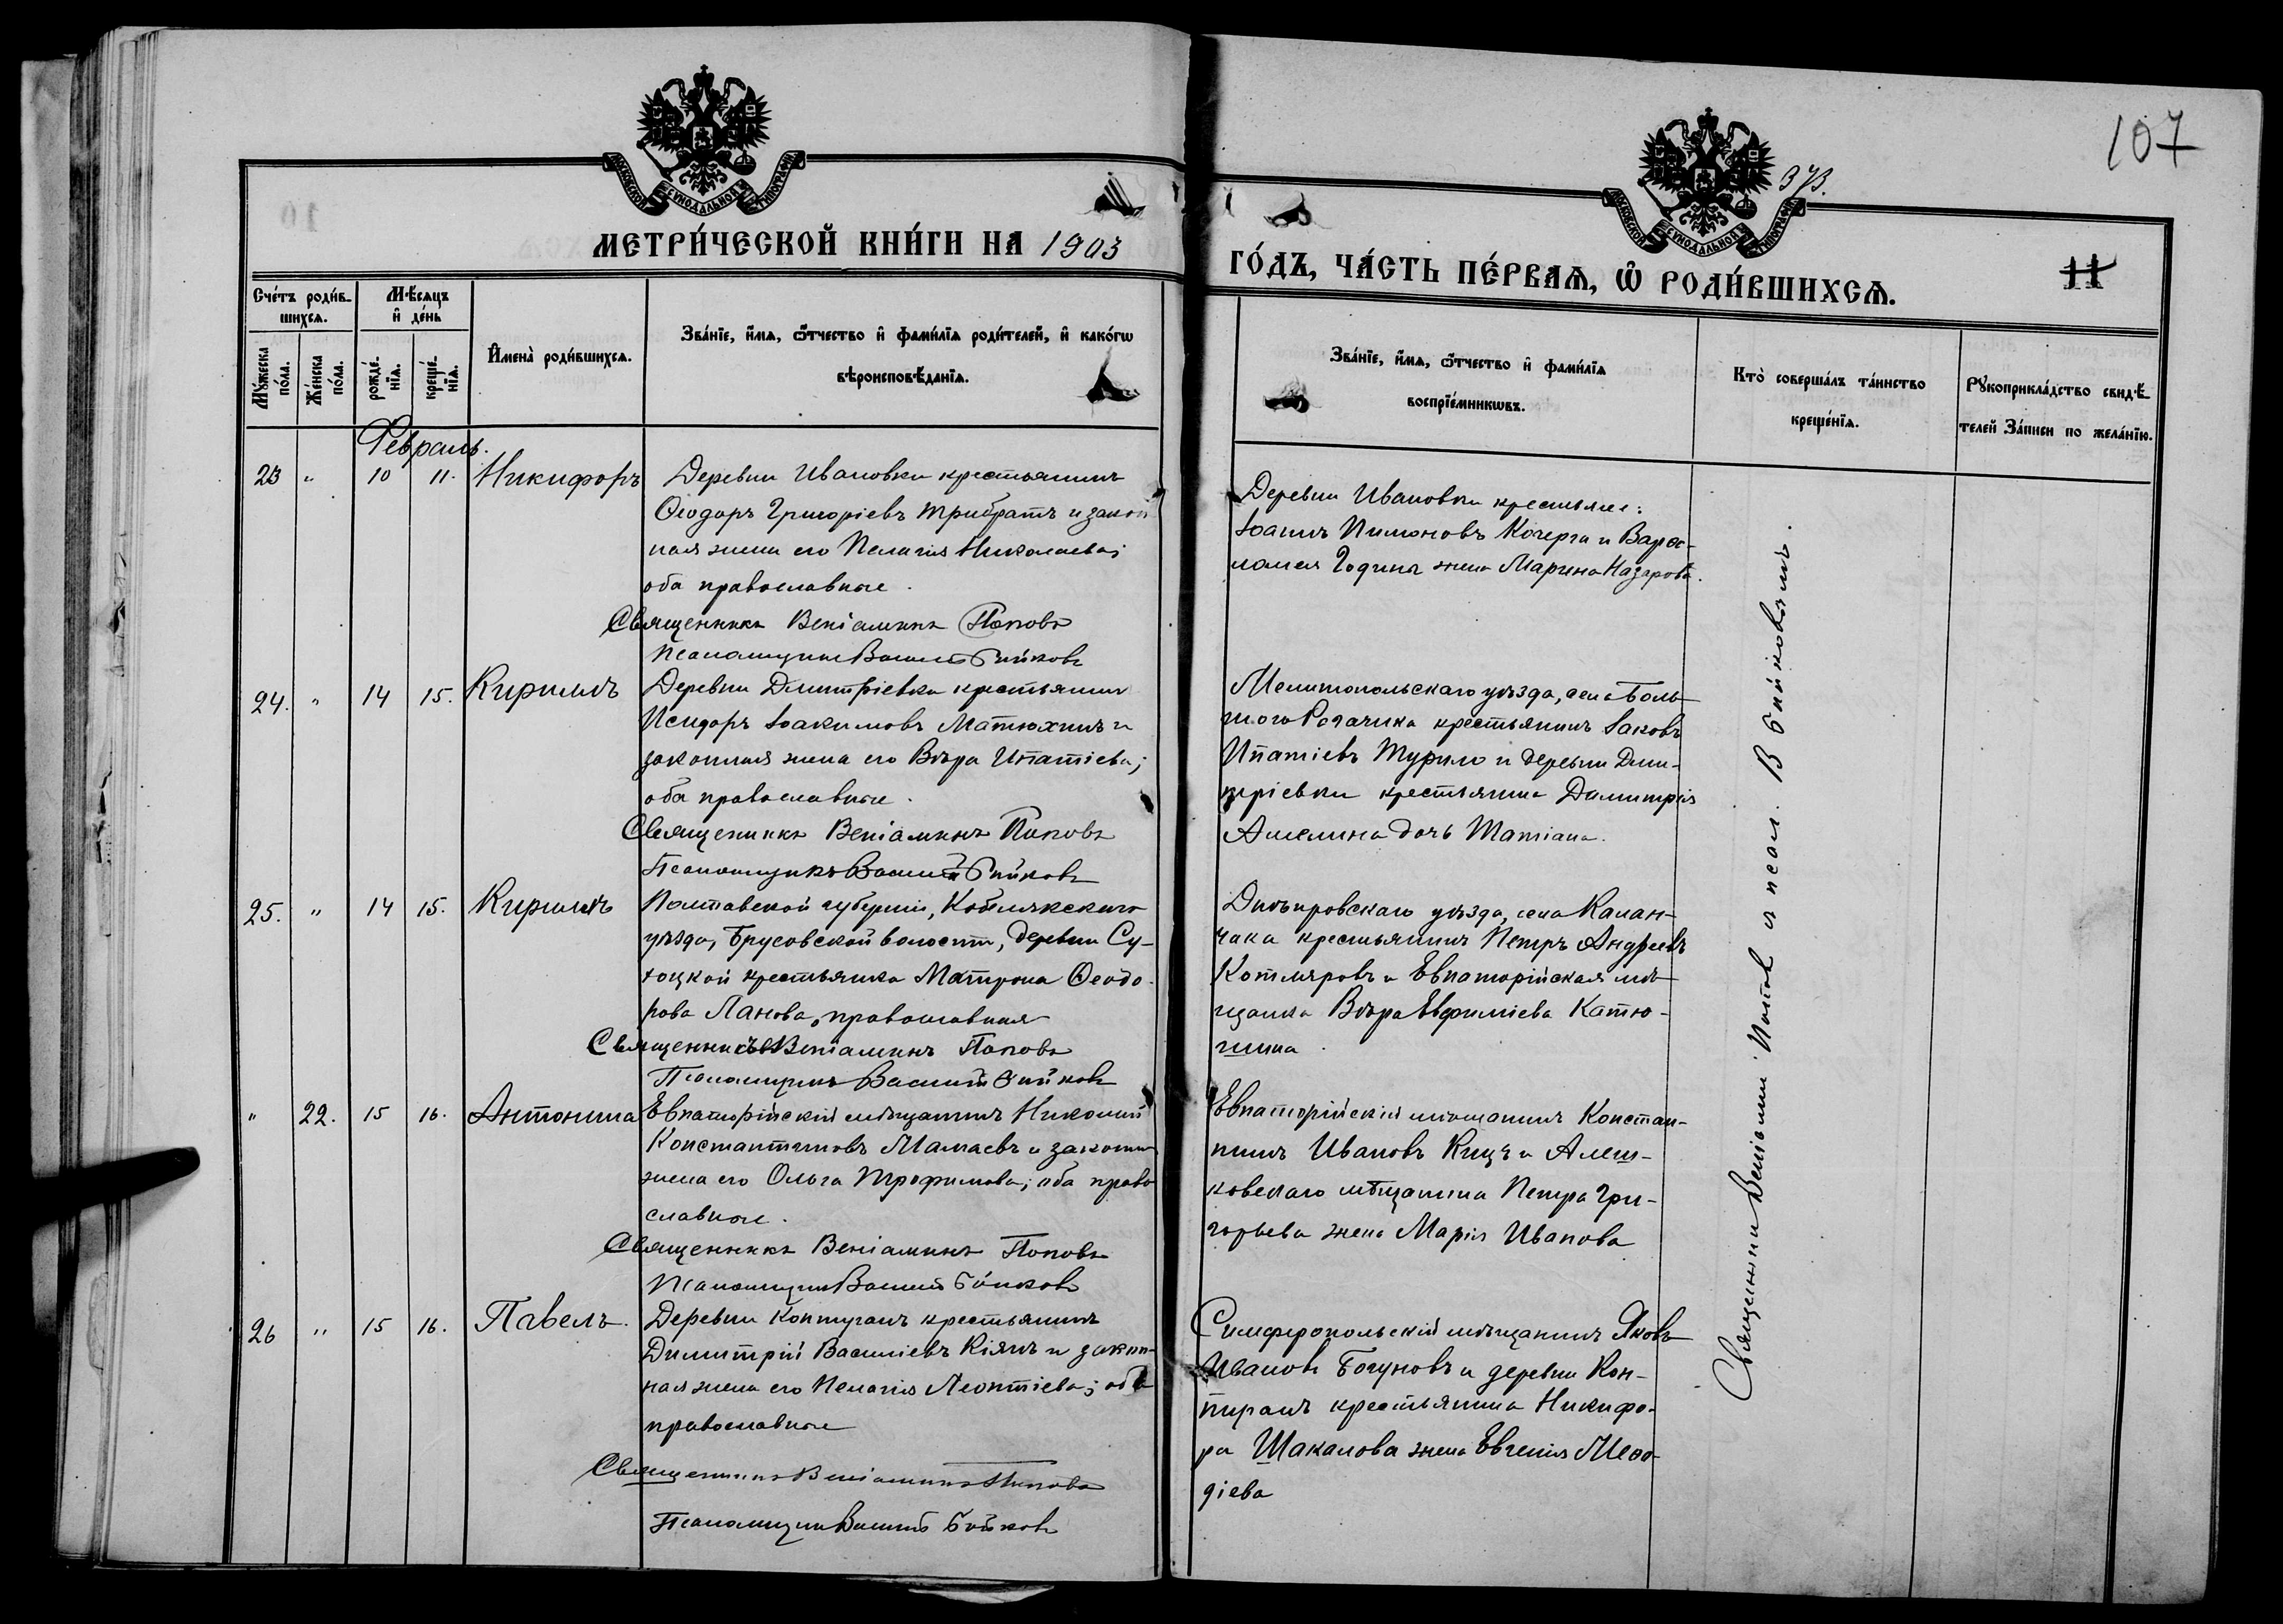 107
373.
МОСКОВСКОЙ СѴНОДАЛЬНОЙ ТИПОГРАФІИ
МОСКОВСКОЙ СѴНОДАЛЬНОЙ ТИПОГРАФІИ
МЕТРИ́ЧЕСКОЙ КНИ́ГИ НА 1903
ГО́ДЪ, ЧА́СТЬ ПЕ́РВАѦ, Ѡ҆ РОДИ́ВШИХСѦ.
11
Сче́тъ роди́в-
шихсѧ.
Мꙋ́жеска по́ла.
Же́нска по́ла.
Мѣ́сѧцъ
и҆ де́нь
рожде́-
нїѧ.
креще́-
нїѧ.
И҆мена̀ роди́вшихсѧ.
Зва́нїе, и҆́мѧ, ѻ҆́тчество и҆ фами́лїѧ роди́телей, и҆ како́гѡ
вѣроисповѣ́данїѧ.
Зва́нїе, и҆́мѧ, ѻ҆́тчество и҆ фами́лїѧ
воспрїе́мникѡвъ.
Кто̀ соверша́лъ та́инство
креще́нїѧ.
Рꙋкоприкла́дство свидѣ́-
телей за́писи по жела́нїю.
Февраль.
23 " 10 11. Никифоръ
Деревни Ивановки крестьянинъ
Ѳеодоръ Григоріевъ Трибратъ и закон
ная жена его Пелагія Николаева;
оба православные.
Священникъ Веніаминъ Поповъ
Псаломщикъ Василій Бойковъ
Деревни Ивановки крестьяне:
Іоаннъ Пимоновъ Кочерга и Варѳо-
ломея Годины жена Марина Назарова.
24. " 14 15. Кириллъ
Деревни Дмитріевки крестьянинъ
Исидоръ Іоакимовъ Матюхинъ и
законная жена его Вѣра Ипатіева;
оба православные.
Священникъ Веніаминъ Поповъ
Псаломщикъ Василій Бойковъ
Мелитопольскаго уѣзда, села Боль-
шого Рогачика крестьянинъ Іаковъ
Ипатіевъ Турило и деревни Дми-
тріевки крестьянина Димитрія
Амелина дочь Татіана.
25. " 14 15. Кириллъ
Полтавской губерніи, Кобелякскаго
уѣзда, Брусовской волости, деревни Су-
хоцкой крестьянка Матрона Ѳеодо-
рова Ланова, православная
Священникъ Веніаминъ Поповъ
Псаломщикъ Василій Бойковъ
Днѣпровскаго уѣзда, села Калан-
чака крестьянинъ Петръ Андреевъ
Котляровъ и Евпаторійская мѣ-
щанка Вѣра Евфиміева Катю-
шина.
" 22. 15 16. Антонина
Евпаторійскій мѣщанинъ Николай
Константиновъ Мамаевъ и законн
жена его Ольга Трофимова; оба право
славные.
Священникъ Веніаминъ Поповъ
Псаломщикъ Василій Бойковъ
Евпаторійскій мѣщанинъ Констан-
тинъ Ивановъ Кицъ и Алеш-
ковскаго мѣщанина Петра Гри-
горьева жена Марія Иванова
26 " 15 16. Павелъ.
Деревни Контуганъ крестьянинъ
Димитрій Василіевъ Кіянъ и закон-
ная жена его Пелагія Леонтіева; оба
православные
Священникъ Веніаминъ Поповъ
Псаломщикъ Василій Бойковъ
Симферопольскій мѣщанинъ Яковъ
Ивановъ Богуновъ и деревни Кон-
туганъ крестьянина Никифо-
ра Шакалова жена Евгенія Меѳо-
діева
Священникъ Веніаминъ Поповъ и псал. В Бойковымъ.